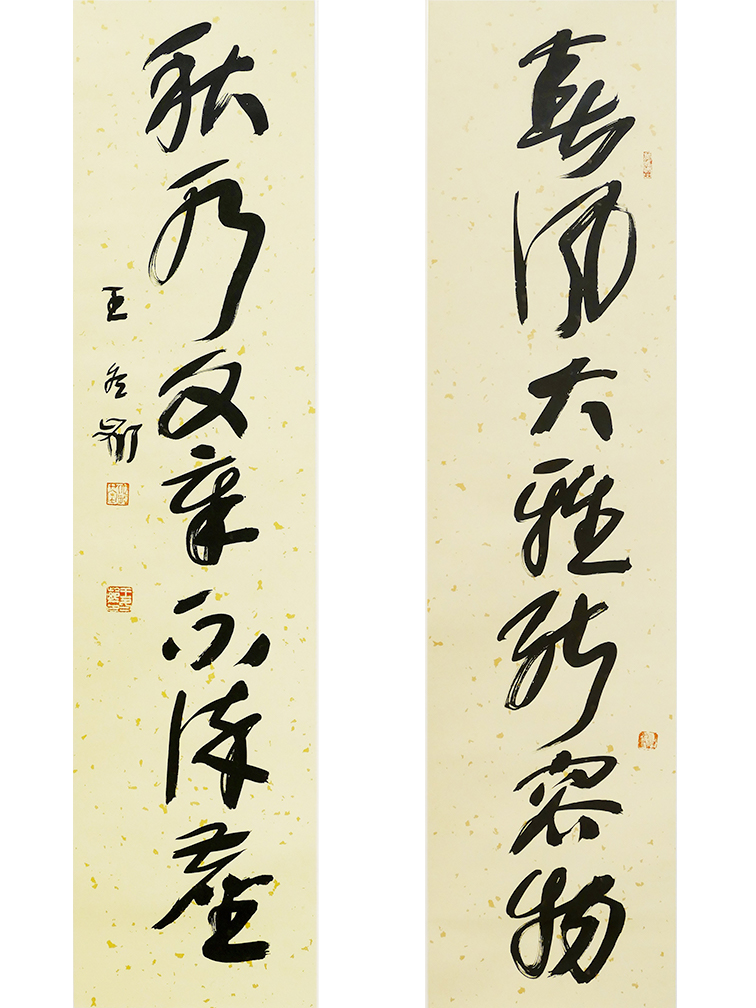 春風大雅能容物
秋水文章不染塵
王冬齡